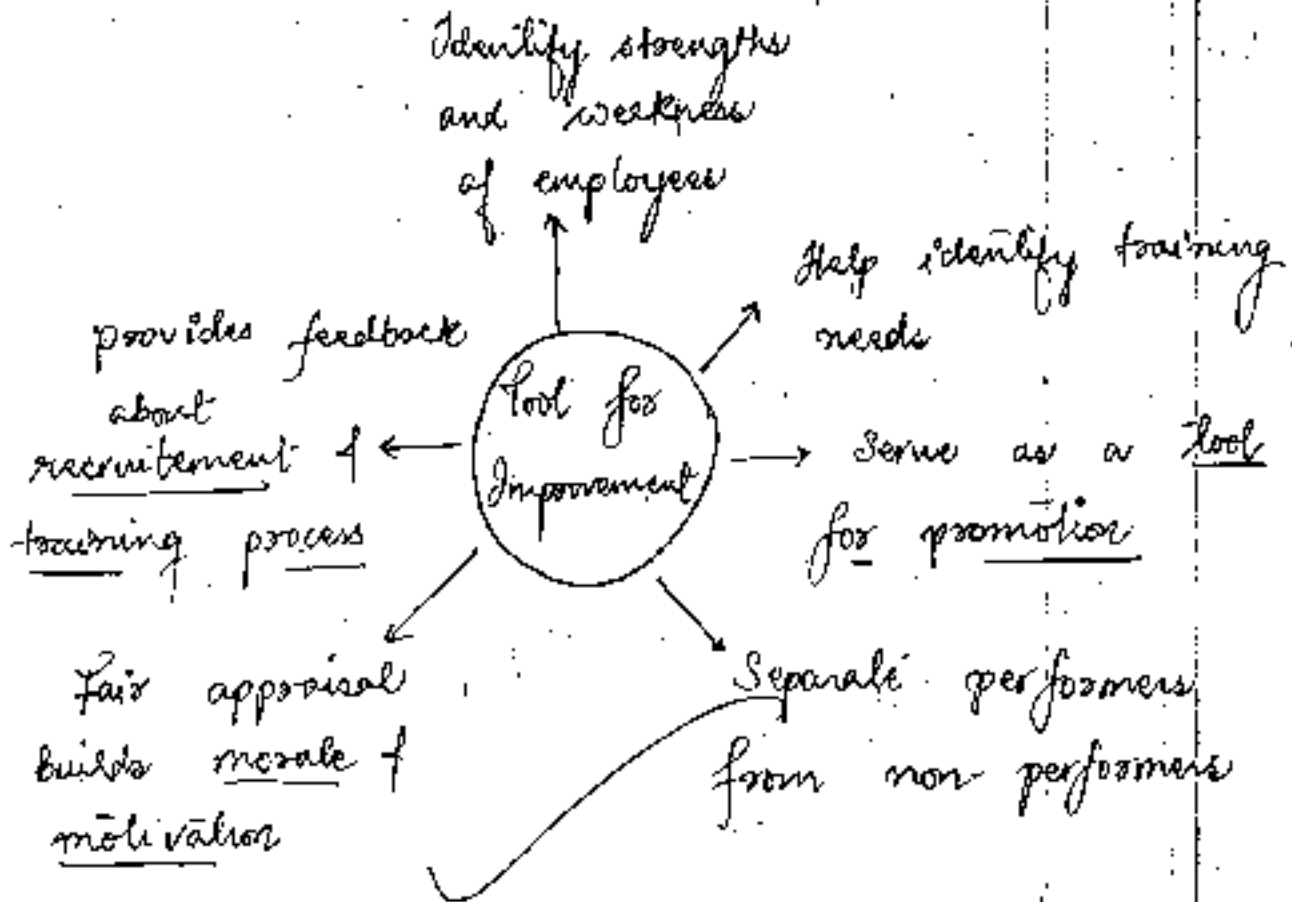 Identify strengths
and weekness
of employees
Help identify training
needs
provides feedback
about
recruitement &
training process
Tool for
Improvement
Serve as a tool
for promotion
Fair appraisal
builds morale &
motivation
Separate performers
from non performers